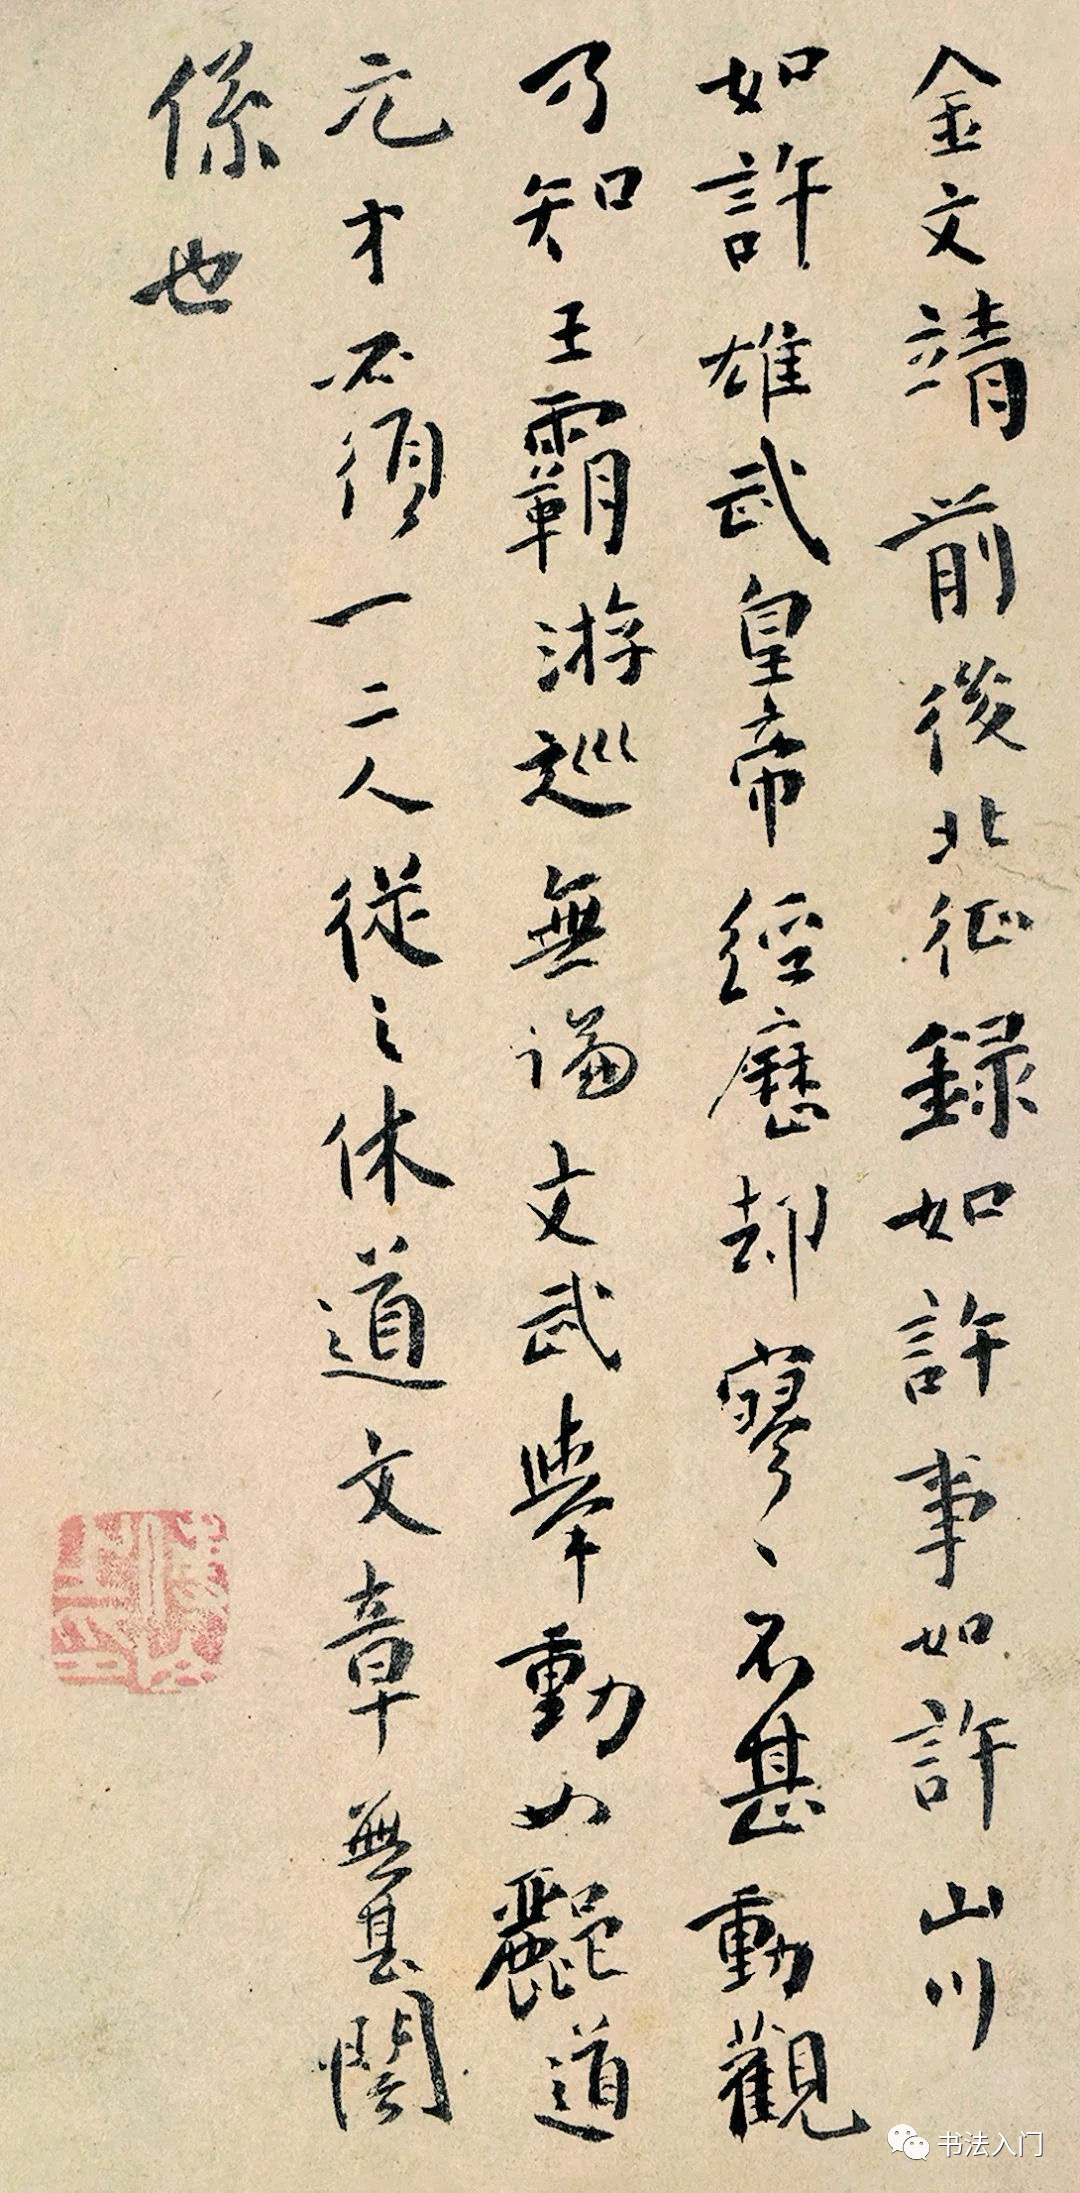 金文靖前後北征録如許事如許山川
如許雄武皇帝經歷却寥〻不甚動觀
乃知王霸游巡無論文武舉動如酈道
元才必須一二人從之休道文章無甚關
係也
书法入门